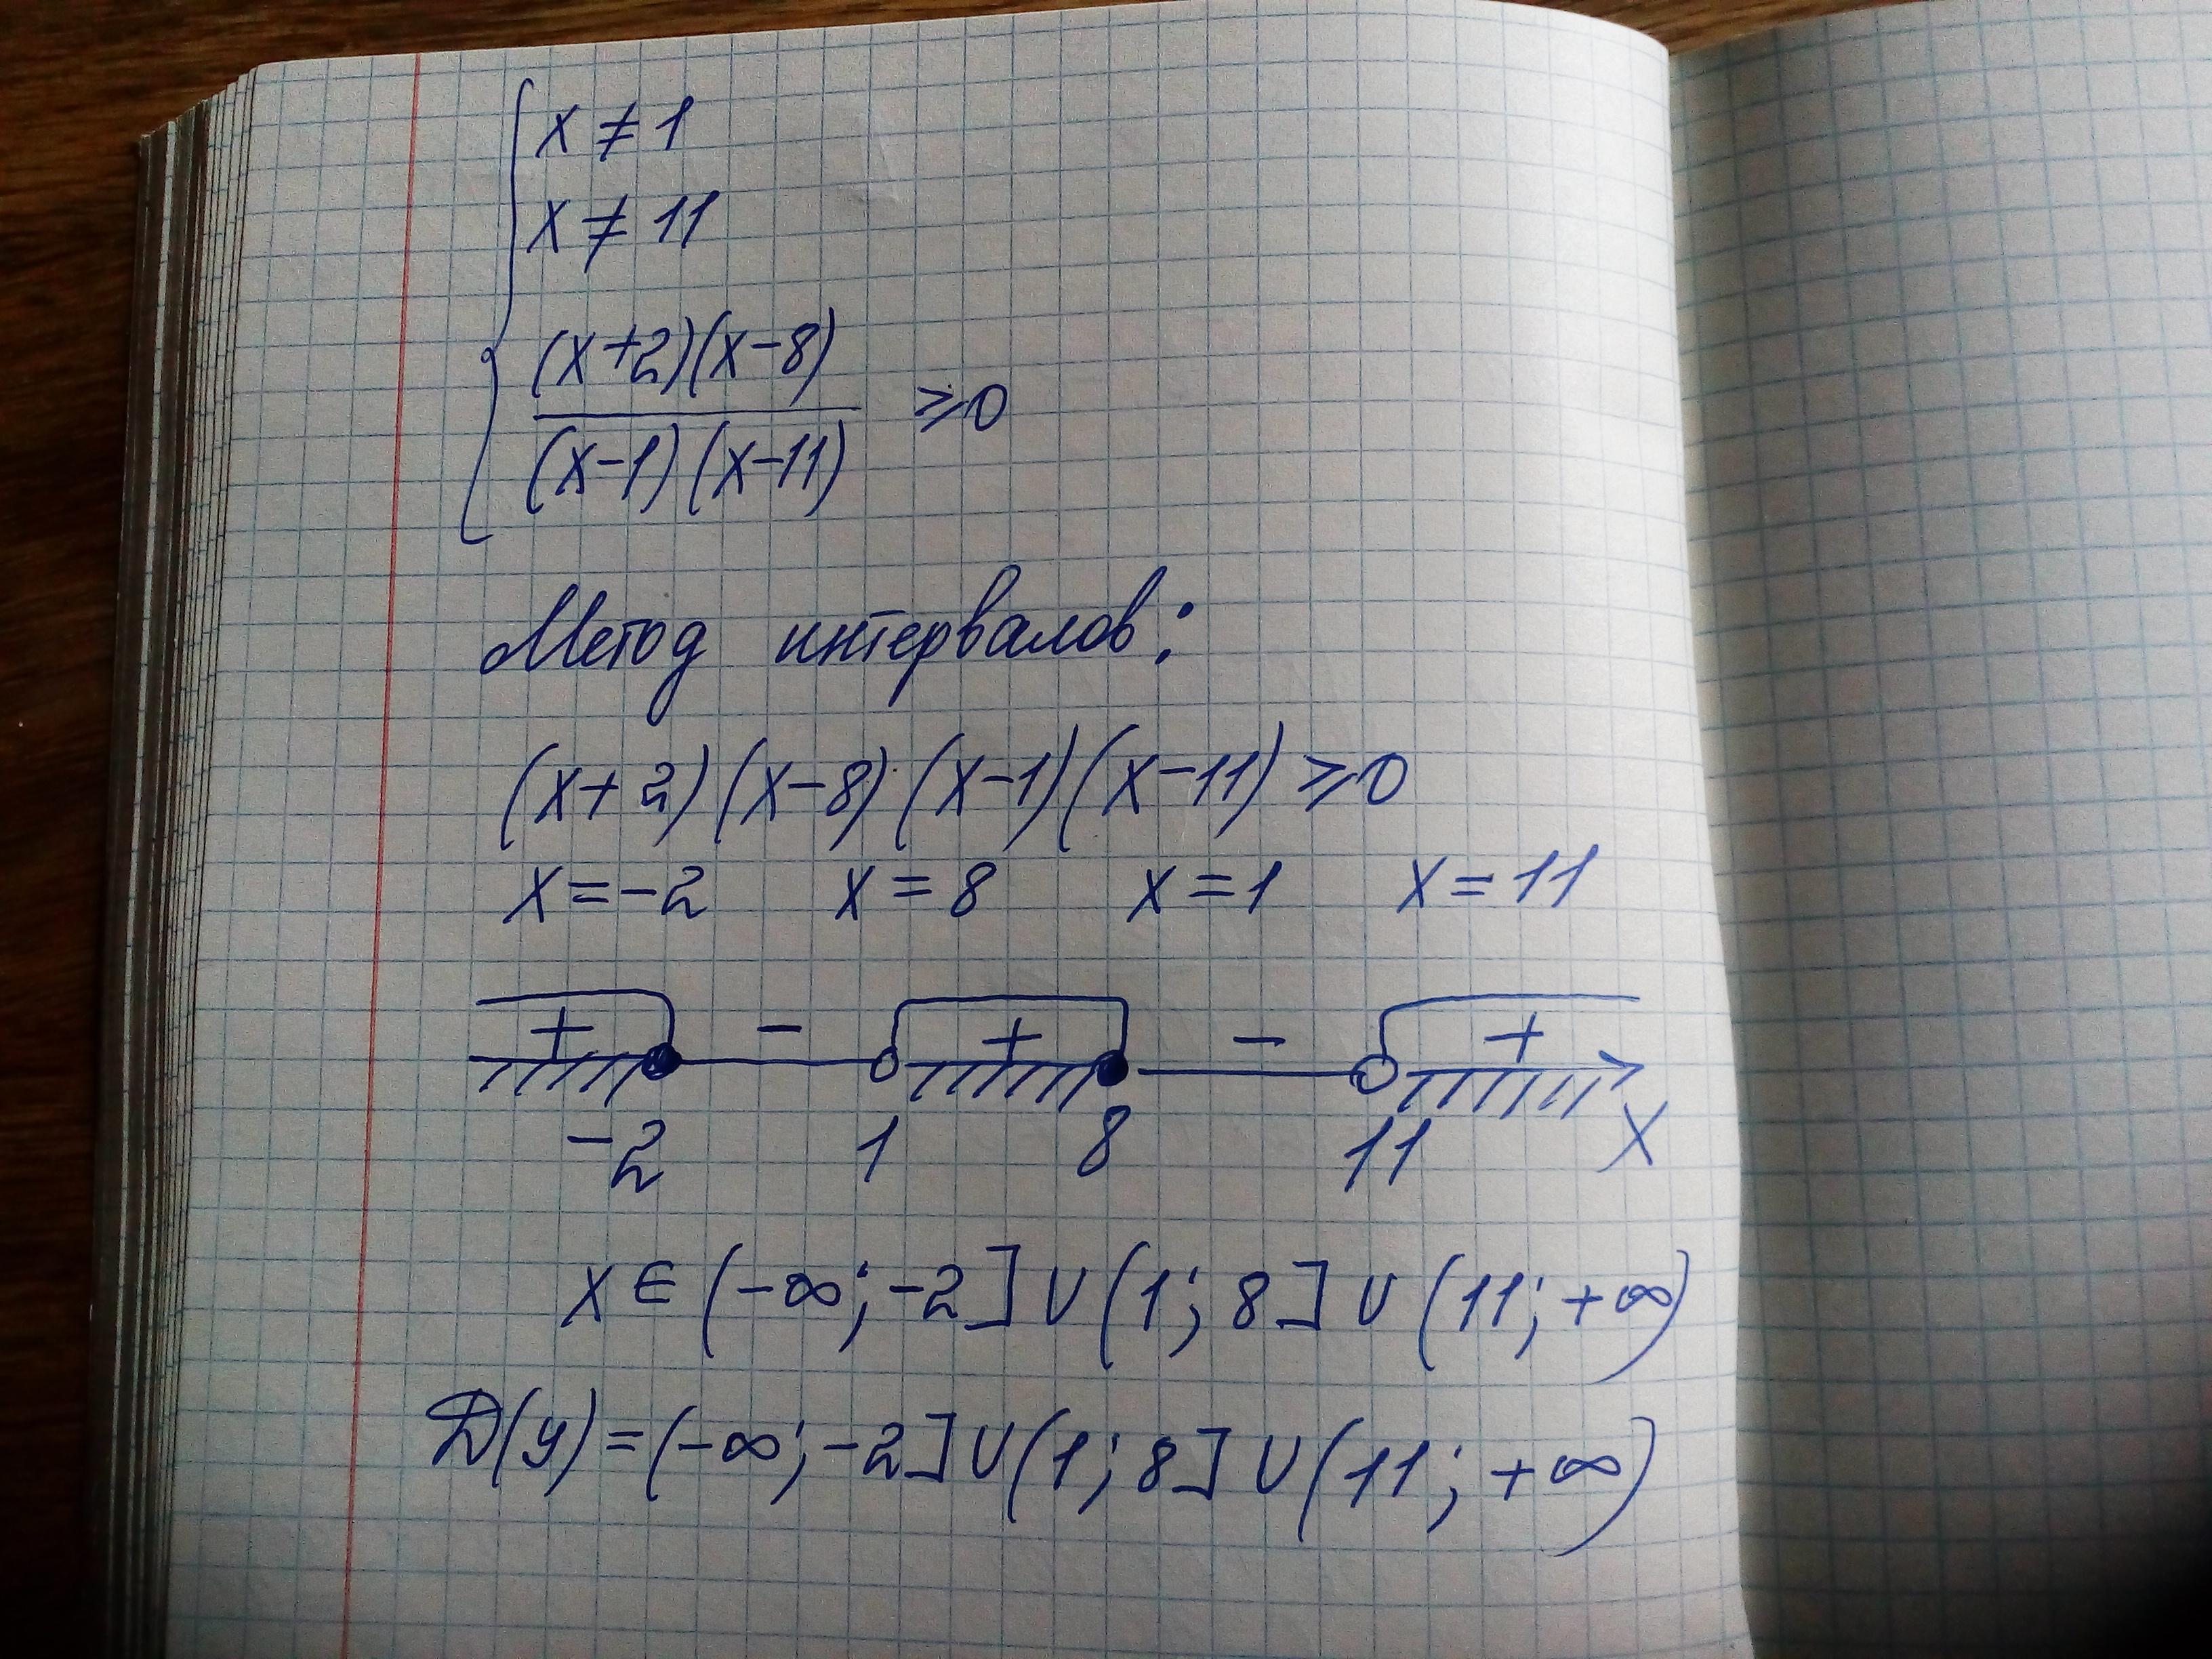 x ≠ 1
x ≠ 11
(x+2)(x-8)
(x-1)(x-11)
⩾0
Метод интервалов:
(x+2)(x-8)(x-1)(x-11)⩾0
x=-2 x=8 x=1 x=11
+ - + - +
-2 1 8 11 x
x∈(-∞;-2]∪(1;8]∪(11;+∞)
D(y)=(-∞;-2]∪(1;8]∪(11;+∞)